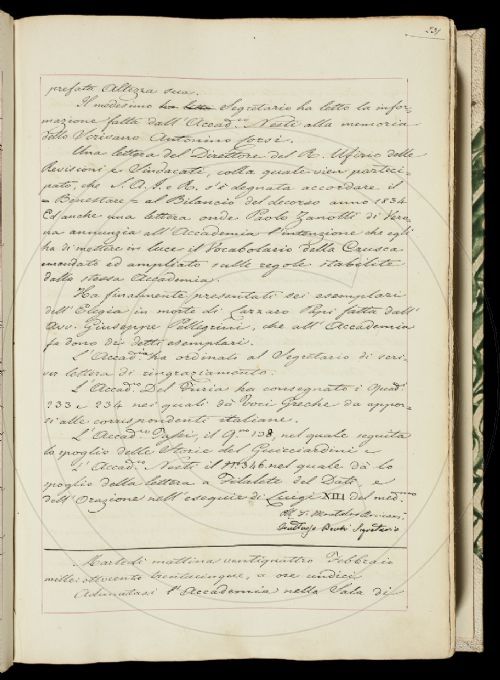 331
prefata Altezza sua.
Il medesimo ha letto Segretario ha letto la infor-
mazione fatta dall'Accad.co Nesti alla memoria
dello Scrivano Antonino
Una lettera del Direttore del R. Ufizio delle
Revisioni e Sindacati, colla quale vien parteci-
pato, che S. A. I. e R. s'è degnata accordare il
Benestare al Bilancio del decorso anno 1834.
Ed anche una lettera onde Paolo Zanotti di Vero-
na annunzia all'Accademia l'intenzione che egli
ha di mettere in luce il Vocabolario della Crusca
emendato ed ampliato sulle regole stabilite
dalla stessa Accademia.
Ha finalmente presentati sei esemplari
dell'Elogio in morte di Lazzaro Papi fatta dall'
Avv. Giuseppe Pellegrini, che all'Accademia
fa dono dei detti esemplari.
L'Accad.mia ha ordinato al Segretario di scri-
ver lettera di ringraziamento.
L'Accad.co Del Furia ha consegnato i Quad.i
233 e 234 nei quali dà Voci Greche da appor-
si alle corrispondenti italiane.
L'Accad.co il Q.no 138, nel quale seguita
lo spoglio delle Storie del Guicciardini e
L'Accad.co Nesti il 346 nel quale dà lo
spoglio della lettera a Filalete del Dati, e
dell'Orazione nell'esequie di Luigi XIII del med.mo
Segretario
Martedì mattina ventiquattro Febbraio
mille ottocento trentacinque, a ore undici
Adunatasi l'Accademia nella Sala di